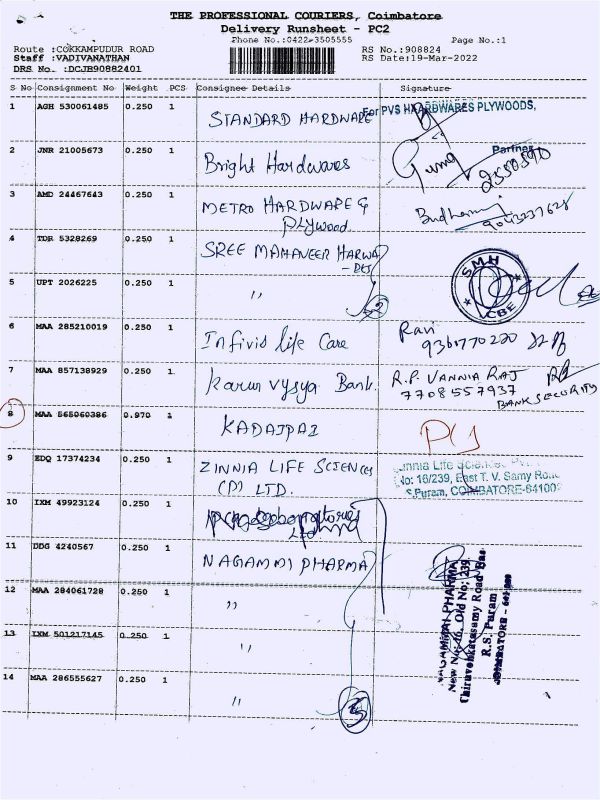 THE PROFESSIONAL COURIERS, Coimbatore
Delivery Runsheet - PC2
Phone No.:0422-3505555 Page No.:1
Route :COKKAMPUDUR ROAD RS No.:908824
Staff :VADIVANATHAN RS Date:19-Mar-2022
DRS No. :DCJB90882401
S No Consignment No Weight PCS Consignee Details Signature
1 AGH 530061485 0.250 1 STANDARD HARDWARE For PVS HARDWARES PLYWOODS,
Partner
2 JNR 21005673 0.250 1 Bright Hardwares
3 AMD 24467643 0.250 1 METRO HARDWARE &
Plywood
4 TDR 5328269 0.250 1 SREE MAHAVEER HARWA
SMH
CBE
5 UPT 2026225 0.250 1 "
6 MAA 285210019 0.250 1 Infivis life Care Ravi
7 MAA 857138929 0.250 1 Karur Vysya Bank. R.P. VANNIA RAJ
7708557937
BANK SECURITY
8 MAA 565060386 0.970 1 KADAIPAI
9 EDQ 17374234 0.250 1 ZINNIA LIFE SCIENCES
(P) LTD.
Zinnia Life Sciences Pvt.
No: 16/239, East T. V. Samy Road
S.Puram, COIMBATORE-641002
10 IXM 49923124 0.250 1
11 DDG 4240567 0.250 1 NAGAMMI PHARMA
12 MAA 284061728 0.250 1 "
13 IXM 501217145 0.250 1 "
14 MAA 286555627 0.250 1 "
NAGAMMAI PHARMA
New No: 46, Old No: 239,
Thiruvenkatasamy Road East
R.S. Puram
COIMBATORE